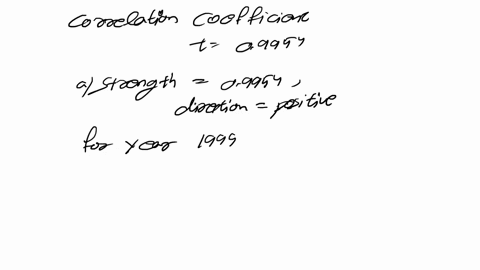 Correlation Coefficient
t= 0.9954
a) strength = 0.9954,
direction = positive
for year 1995